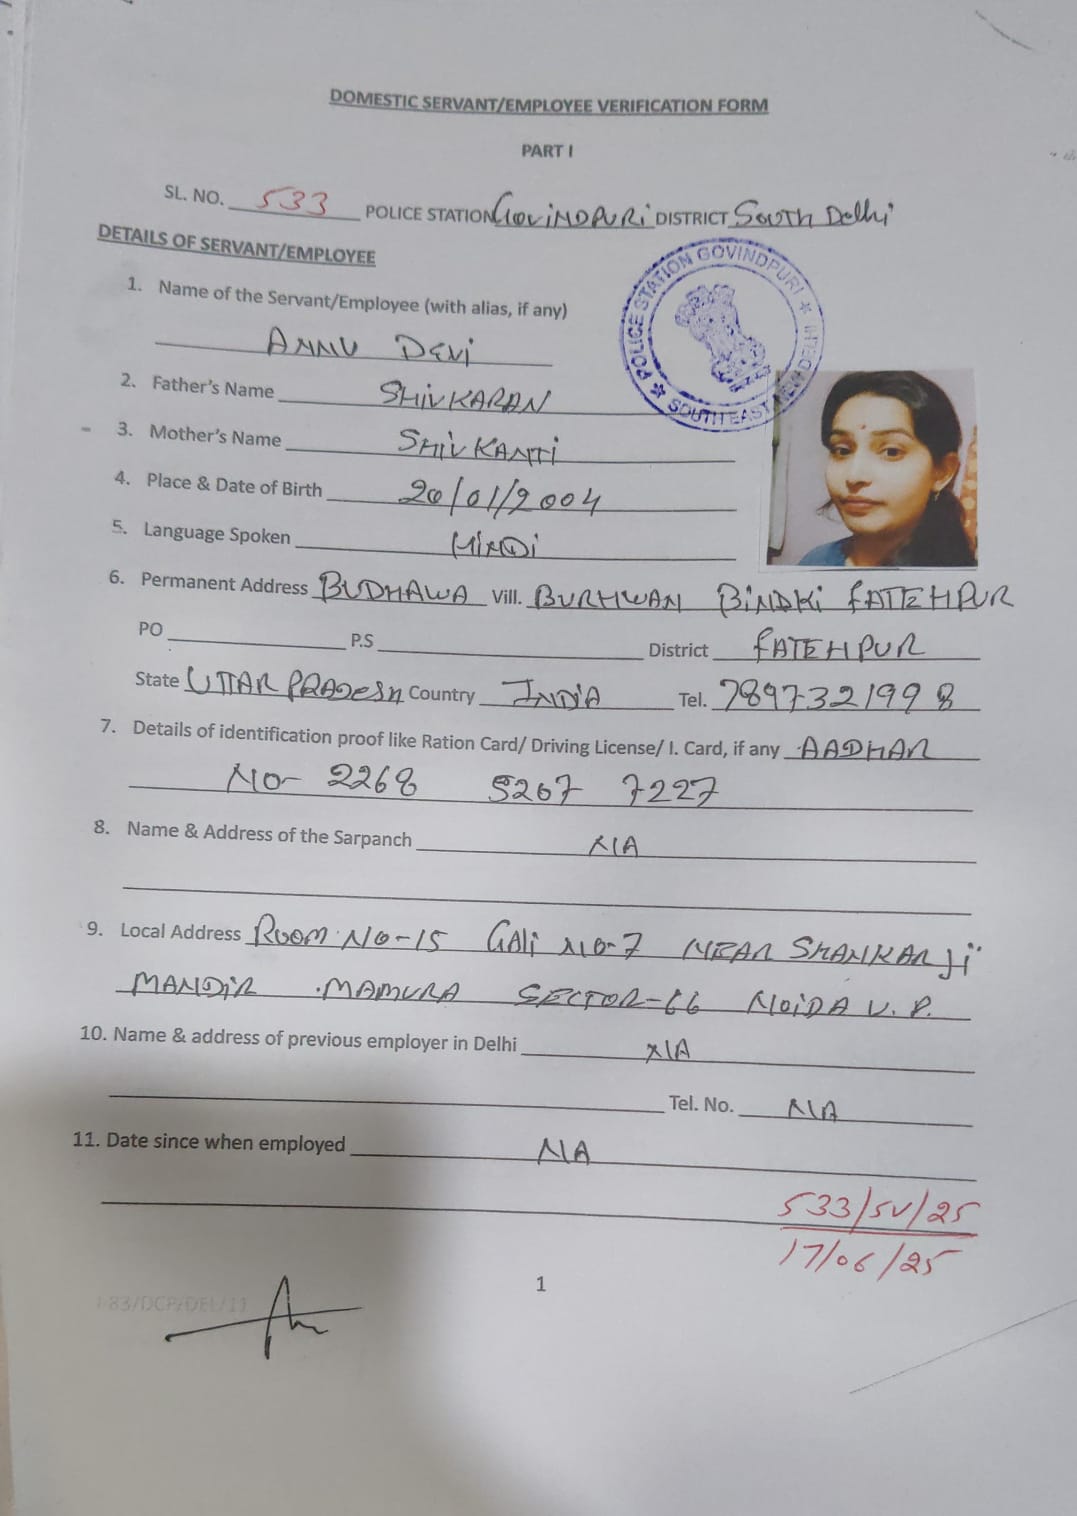 DOMESTIC SERVANT/EMPLOYEE VERIFICATION FORM
PART I
SL. NO. 533 POLICE STATION GOVINDPURI DISTRICT South Delhi
DETAILS OF SERVANT/EMPLOYEE
POLICE STATION GOVINDPURI
SOUTH EAST NEW DELHI
1. Name of the Servant/Employee (with alias, if any)
ANNU DEVI
2. Father's Name SHIVKARAN
3. Mother's Name SHIVKANTI
4. Place & Date of Birth 20/01/2004
5. Language Spoken HINDI
6. Permanent Address BUDHAWA Vill. BURHWAN BINDKI FATEHPUR
PO P.S District FATEHPUR
State UTTAR PRADESH Country INDIA Tel. 7897321998
7. Details of identification proof like Ration Card/ Driving License/ I. Card, if any AADHAR
NO- 2268 5267 7227
8. Name & Address of the Sarpanch N/A
9. Local Address ROOM NO-15 GALI NO-7 NEAR SHANKAR Ji
MANDIR MAMURA SECTOR-66 NOIDA U.P.
10. Name & address of previous employer in Delhi N/A
Tel. No. N/A
11. Date since when employed N/A
533/SV/25
17/06/25
1